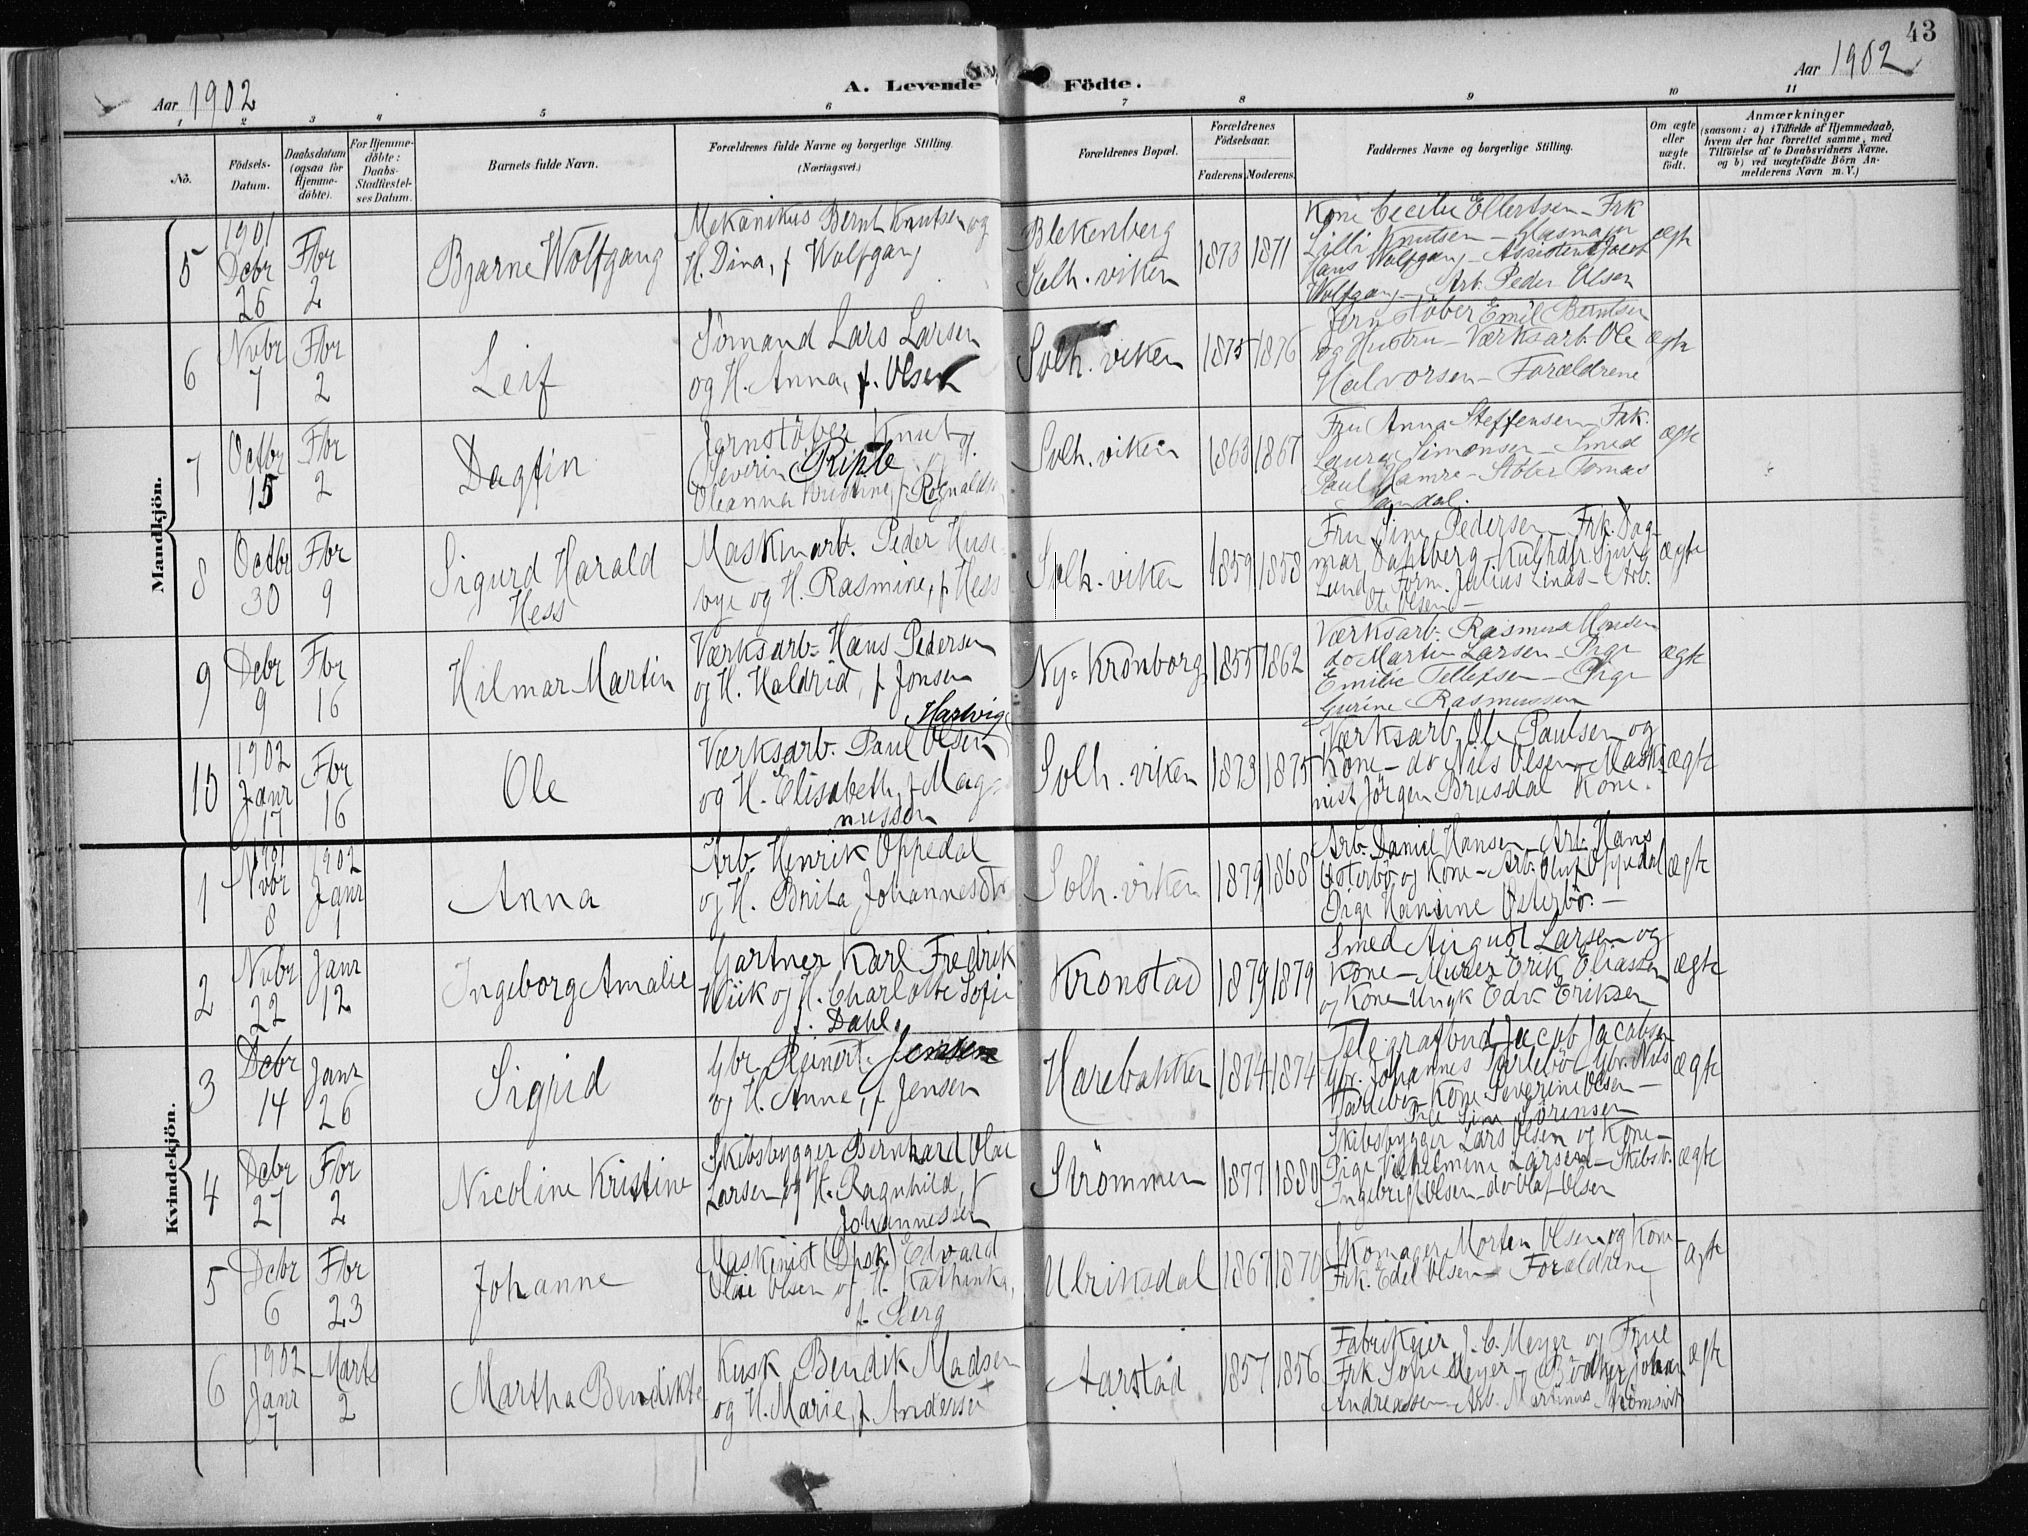 43
Aar 1902
A. Levende Födte.
Aar 1902
1 2 3 4 5 6 7 8 9 10 11
No.
Födsels-Datum.
Daabsdatum (ogsaa for Hjemme-döbte).
For Hjemme-döbte: Daabs-Stadfæstel-ses Datum.
Barnets fulde Navn.
Forældrenes fulde Navne og borgerlige Stilling. (Næringsvei.)
Forældrenes Bopæl.
Forældrenes Födselsaar.
Faderens Moderens.
Faddernes Navne og borgerlige Stilling.
Om ægte eller uægte födt.
Anmærkninger
(saasom: a) i Tilfælde af Hjemmedaab, hvem der har forrettet samme, med Tilföielse af to Daabsvidners Navne, og b) ved uægtefödte Börn An-melderens Navn m. V.)
Mandkjön.
5
1901 Debr 25
Fbr 2
Bjarne Wolfgang
Mekanikus Bernt Knutsen og
H. Dina, f. Wolfgang
Blekenberg
Solh. viken
1873 1871
Kone Cecilie Ellertsen - Frk
Lilli Knutsen - Glasmager
Hans Wolfgang - Assistent Jacob
Wolfgang - Arb. Peder Olsen
ægte
6
Nvbr 7
Fbr 2
Leif
Sömand Lars Larsen
og H. Anna, f. Olsen
Solh. viken
1875 1876
Jernstöber Emil Berntsen
og Hustru - Værksarb. Ole
Halvorsen - Forældrene
ægte
7
Octbr 15
Fbr 2
Dagfin
Jernstöber Knut
Severin Riple og H.
Oleanna Kristine, f. Rognaldsen
Solh. viken
1863 1867
Fru Anna Steffensen - Frk.
Laura Simonsen - Smed
Paul Hamre - Stöber Tomas
Sandal.
ægte
8
Octbr 30
Fbr 9
Sigurd Harald
Hess
Maskinarb. Peder Huse-
bye og H. Rasmine, f. Hess
Solh. viken
1859 1858
Fru Sina Pedersen - Frk. Dag-
mar Dahlberg -
Lund - Form. Julius Linas - Arb.
Ole Olsen -
ægte
9
Debr 9
Fbr 16
Hilmar Martin
Værksarb. Hans Pedersen
og H. Haldrid, f. Jonsen
Ny-Kronborg
1855 1862
Værksarb. Rasmus Monsen
do Martin Larsen - Pige
Emilie Tellefsen - Pige
Gurine Rasmussen
ægte
10
1902 Janr 17
Fbr 16
Ole
Hartvig
Værksarb. Paul Olsen
og H. Elisabeth, f. Mag-
nussen
Solh. viken
1873 1875
Værksarb. Ole Paulsen og
Kone - do Nils Olsen - Maski-
nist Jörgen Brusdal Kone.
ægte
Kvindekjön.
1
1901 Nvbr 8
1902 Janr 1
Anna
Arb. Henrik Oppedal
og H. Brita Johannesdtr
Solh. viken
1879 1868
Arb. Daniel Hansen - Arb. Hans
Österbö og Kone - Arb. Oluf Oppedal
Pige Hansine Österbö. -
ægte
2
Nvbr 22
Janr 12
Ingeborg Amalie
Gartner Karl Fredrik
Wiik og H. Charlotte Sofie
f. Dahl.
Kronstad
1879 1879
Smed August Larsen og
Kone - Murer Erik Eliassen
og Kone - Ungk Edv. Eriksen
ægte
3
Debr 14
Janr 26
Sigrid
Gbr. Reinert Jensen
og H. Anne, f. Jensen
Harebakken
1874 1874
Telegrafbud Jacob Jacobsen
Gbr. Johannes Tarlebö - Gbr. Nils
Tarlebö - Kone Severine Olsen -
Pige Sina Sörensen
ægte
4
Debr 27
Fbr 2
Nicoline Kristine
Skibsbygger Bernhard Olai
Larsen og H. Ragnhild, f.
Johannessen
Strömmen
1877 1880
Skibsbygger Lars Olsen og Kone -
Pige Vilhelmine Larsen - Skibsb.
Ingebrigt Olsen - do Olaf Olsen
ægte
5
Debr 6
Fbr 23
Johanne
Maskinist (Dpsk) Edvard
Olai Olsen og H. Kathinka,
f. Berg
Ulriksdal
1867 1870
Skomager Morten Olsen og Kone -
Frk. Edel Olsen - Forældrene
ægte
6
1902 Janr 7
Marts 2
Martha Bendikte
Kusk Bendik Madsen
og H. Marie, f. Andersen
Aarstad
1857 1856
Fabrikeier J. C. Meyer og Frue
Frk Sofie Meyer - Bödker Johan
Andreassen - Arb. Martinus
ægte